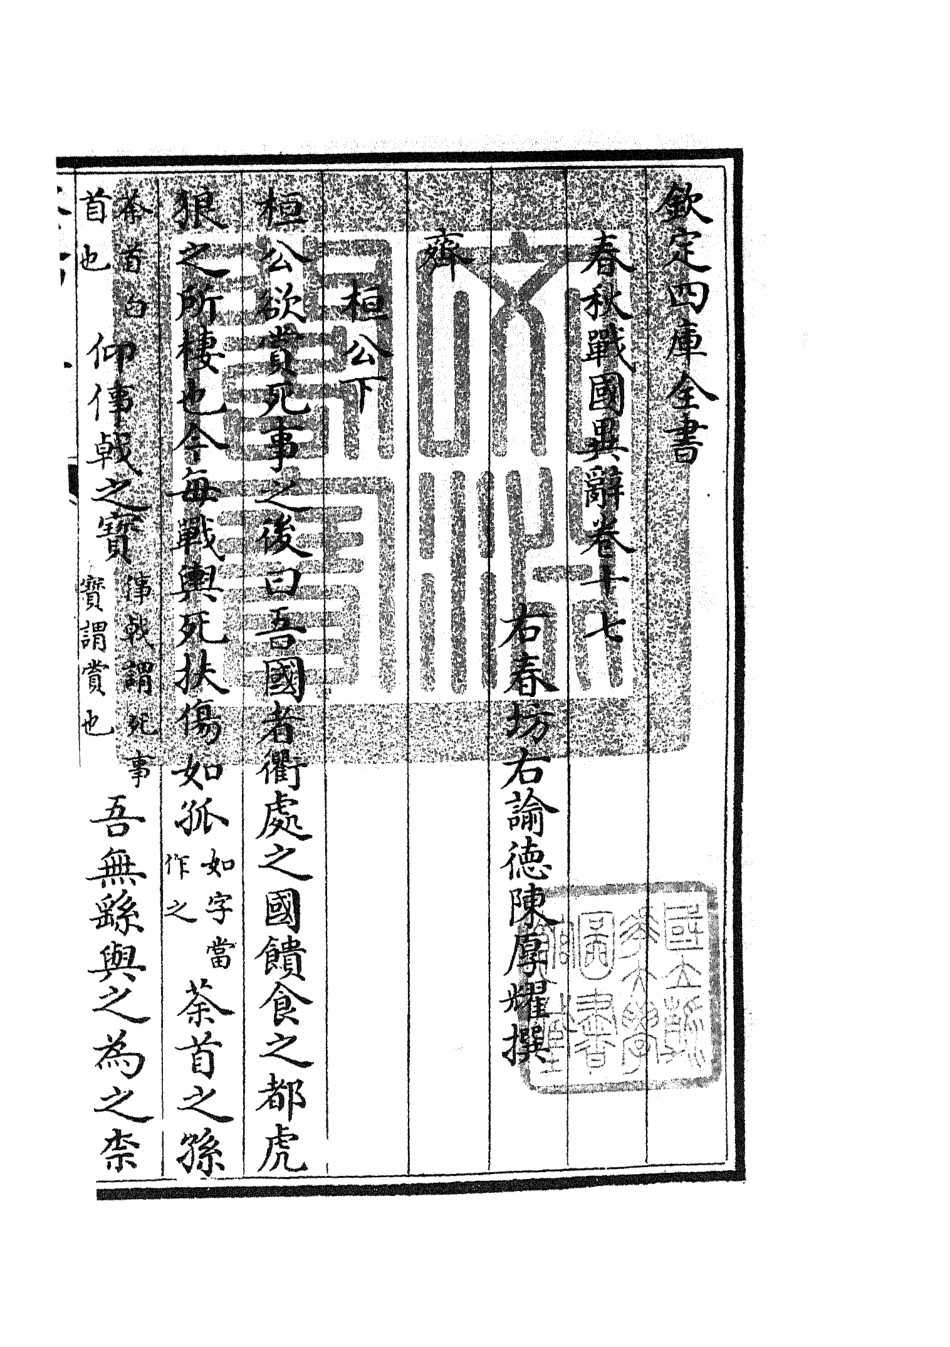 欽定四庫全書
春秋戰國異辭卷十七
右春坊右諭德陳厚耀撰
齊
桓公下
桓公欲賞死事之後曰吾國者衢處之國饋食之都虎
狼之所棲也今每戰輿死扶傷如孤如字當作之荼首之孫
荼首白首也仰倳戟之寶倳戟謂死事寶謂賞也吾無繇與之為之柰